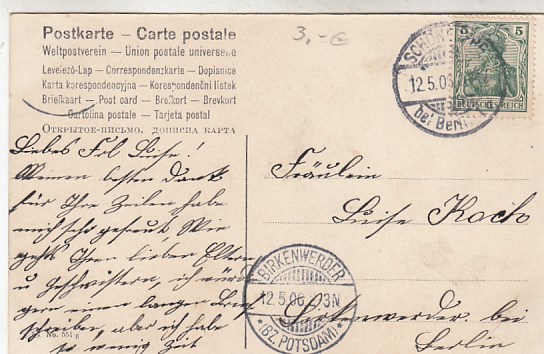 Postkarte — Carte postale
Weltpostverein — Union postale universelle
Levelező-Lap — Correspondenzkarte — Dopisnice
Karta korespondencyjna — Korespondenční lístek
Briefkaart — Post card — Brafkort — Brevkort
Cartolina postale — Tarjeta postal
ОТКРЫТОЕ-ПИСЬМО. ДОПИСНА КАРТА
3,-€
12.5.06
bei Berlin
5 5
DEUTSCHES REICH
Liebes Frl. Luise!
Meinen besten Dank
für Ihre Zeilen habe
mich sehr gefreut. Wie
geht Ihren lieben Eltern
u Geschwistern, ich würde
gern einen langen Brief
schreiben, aber ich habe
so wenig Zeit
Fräulein
Luise Koch
Birkenwerder bei
Berlin
BIRKENWERDER
12.5.06.
*(BZ.POTSDAM)*
No. 551